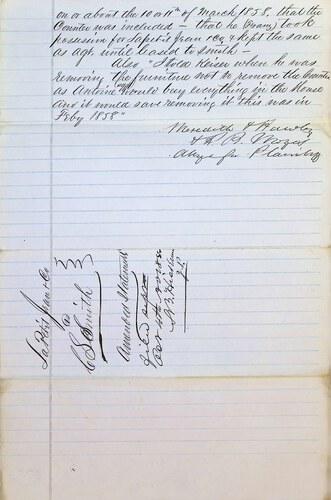 on or about the 10 or 11th of March 1858, that the
Counter was included – that he (Evans) took
possession for Lapeste Jean & Co & kept the same
as Agt until leased to Smith –
Also, "I told Keiser when he was
removing the furniture not to remove the Counter
as Antoine would buy everything in the House
and it would save removing it this was in
Feby 1858"
Meredith & Hawley
& R. B.
Attys for Plaintiffs
Jean & Co
vs
C S Smith
Amended Statement
Filed